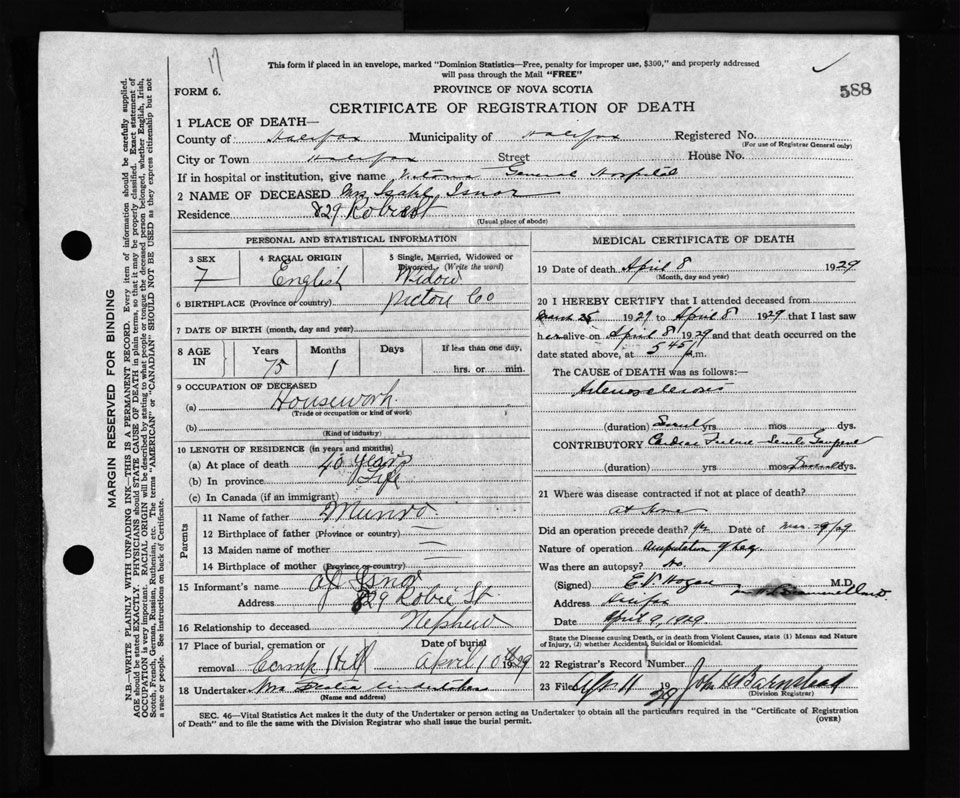 17
This form if placed in an envelope, marked "Dominion Statistics—Free, penalty for improper use, $300," and properly addressed
will pass through the Mail "FREE"
588
FORM 6.
PROVINCE OF NOVA SCOTIA
CERTIFICATE OF REGISTRATION OF DEATH
1 PLACE OF DEATH—
County of Halifax Municipality of Halifax Registered No.
(For use of Registrar General only)
City or Town Halifax Street House No.
If in hospital or institution, give name Victoria General Hospital
2 NAME OF DECEASED Mrs Isabel Isnor
Residence 829 Robie St
(Usual place of abode)
MARGIN RESERVED FOR BINDING
N.B.—WRITE PLAINLY WITH UNFADING INK—THIS IS A PERMANENT RECORD. Every item of information should be carefully supplied.
AGE should be stated EXACTLY. PHYSICIANS should STATE CAUSE OF DEATH in plain terms, so that it may be properly classified. Exact statement of
OCCUPATION is very important. RACIAL ORIGIN will be described by stating to what people or tongue the deceased person belonged, whether English, Irish,
Scotch, French, German, Russian, Ruthenian, etc. The terms "AMERICAN" or "CANADIAN" SHOULD NOT BE USED as they express citizenship but not
a race or people. See instructions on back of Certificate.
PERSONAL AND STATISTICAL INFORMATION
3 SEX 4 RACIAL ORIGIN 5 Single, Married, Widowed or
Divorced. (Write the word)
7 English Widow
6 BIRTHPLACE (Province or country) Pictou Co
7 DATE OF BIRTH (month, day and year)
8 AGE IN Years Months Days If less than one day,
75 1 hrs. or min.
9 OCCUPATION OF DECEASED
(a) Housework
(Trade or occupation or kind of work)
(b)
(Kind of industry)
10 LENGTH OF RESIDENCE (in years and months)
(a) At place of death 40 Years
(b) In province Life
(c) In Canada (if an immigrant)
Parents
11 Name of father Munro
12 Birthplace of father (Province or country) —
13 Maiden name of mother —
14 Birthplace of mother (Province or country)
15 Informant's name Isnor
Address 829 Robie St
16 Relationship to deceased Nephew
17 Place of burial, cremation or Date of burial
removal Camp Hill April 10th 1929
18 Undertaker Mrs
(Name and address)
MEDICAL CERTIFICATE OF DEATH
19 Date of death April 8 1929
(Month, day and year)
20 I HEREBY CERTIFY that I attended deceased from
March 28 1929 to April 8 1929 that I last saw
her alive on April 8 1929 and that death occurred on the
date stated above, at 5 45 p.m.
The CAUSE of DEATH was as follows:—
Arteriosclerosis
(duration) yrs mos dys.
CONTRIBUTORY Cardiac Failure Senile Gangrene
(duration) yrs mos dys.
21 Where was disease contracted if not at place of death?
at home
Did an operation precede death? yes Date of Mar. 29/29
Nature of operation Amputation of Leg
Was there an autopsy? No.
(Signed) E V Hogan M.D.
Address Halifax
Date April 9, 1929
State the Disease causing Death, or in death from Violent Causes, state (1) Means and Nature
of Injury, (2) whether Accidental, Suicidal or Homicidal.
22 Registrar's Record Number
23 Filed 11 1929 John Barnstead
(Division Registrar)
SEC. 46—Vital Statistics Act makes it the duty of the Undertaker or person acting as Undertaker to obtain all the particulars required in the "Certificate of Registration
of Death" and to file the same with the Division Registrar who shall issue the burial permit.
(OVER)